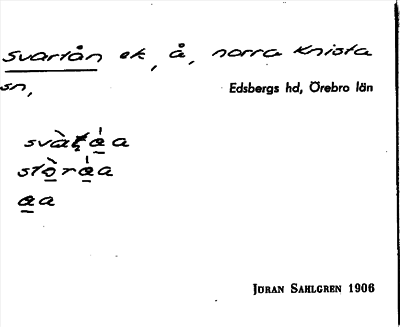 Svartån ek, å, norra Knista
sn,
Edsbergs hd, Örebro län
stòråa
aa
JÖRAN SAHLGREN 1906